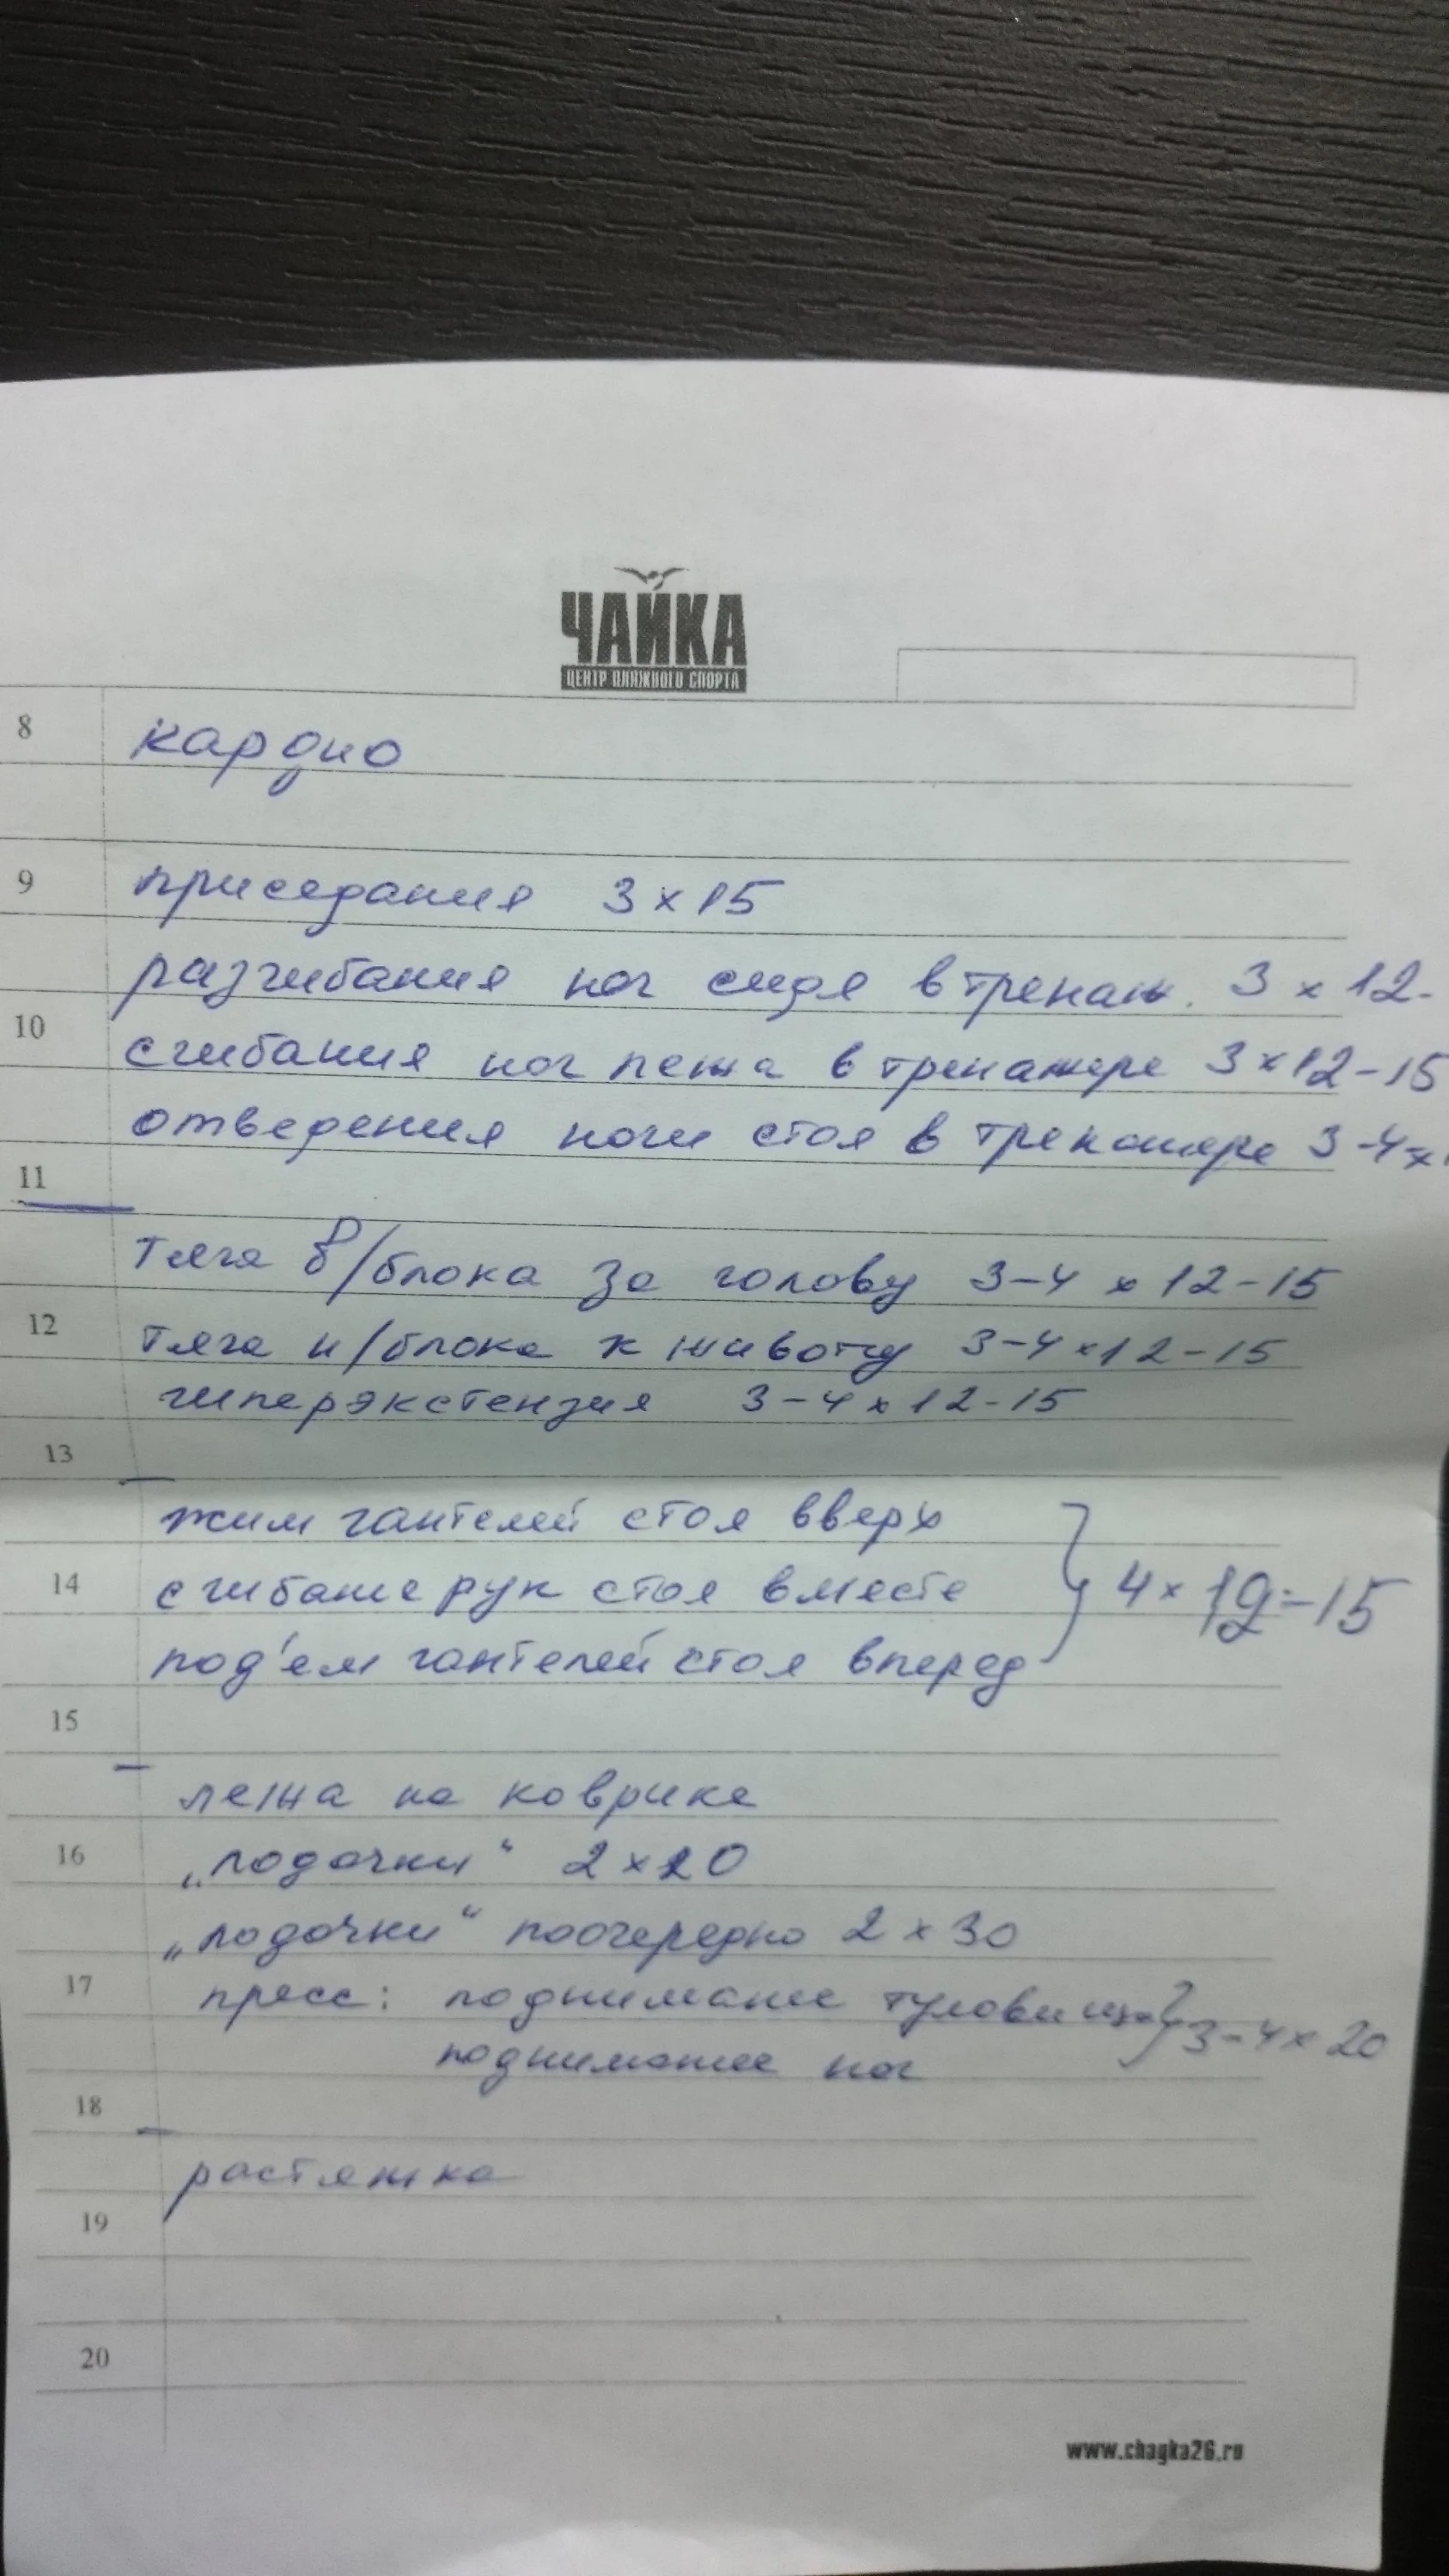 ЧАЙКА
ЦЕНТР ПЛЯЖНОГО СПОРТА
8
кардио
9
приседания 3 x 15
разгибания ног сидя в тренаж. 3 x 12-
10
сгибания ног лежа в тренажере 3 x 12-15
отведения ноги стоя в тренажере 3-4 x
11
тяга в/блока за голову 3-4 x 12-15
12
тяга н/блока к животу 3-4 x 12-15
гиперэкстензия 3-4 x 12-15
13
жим гантелей стоя вверх
14
сгибание рук стоя вместе } 4 x 12-15
под'ем гантелей стоя вперед
15
лежа на коврике
16
„лодочки“ 2 x 20
„лодочки“ поочередно 2 x 30
17
пресс: поднимание туловища } 3-4 x 20
поднимание ног
18
растяжка
19
20
www.chagka26.ru